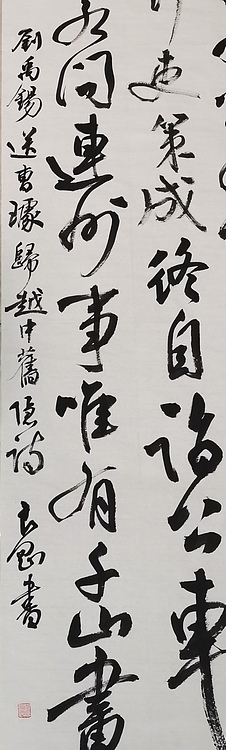 吏策成終自詣公車
若問連州事唯有千山畫
劉禹錫送曹璩歸越中舊隱詩 書